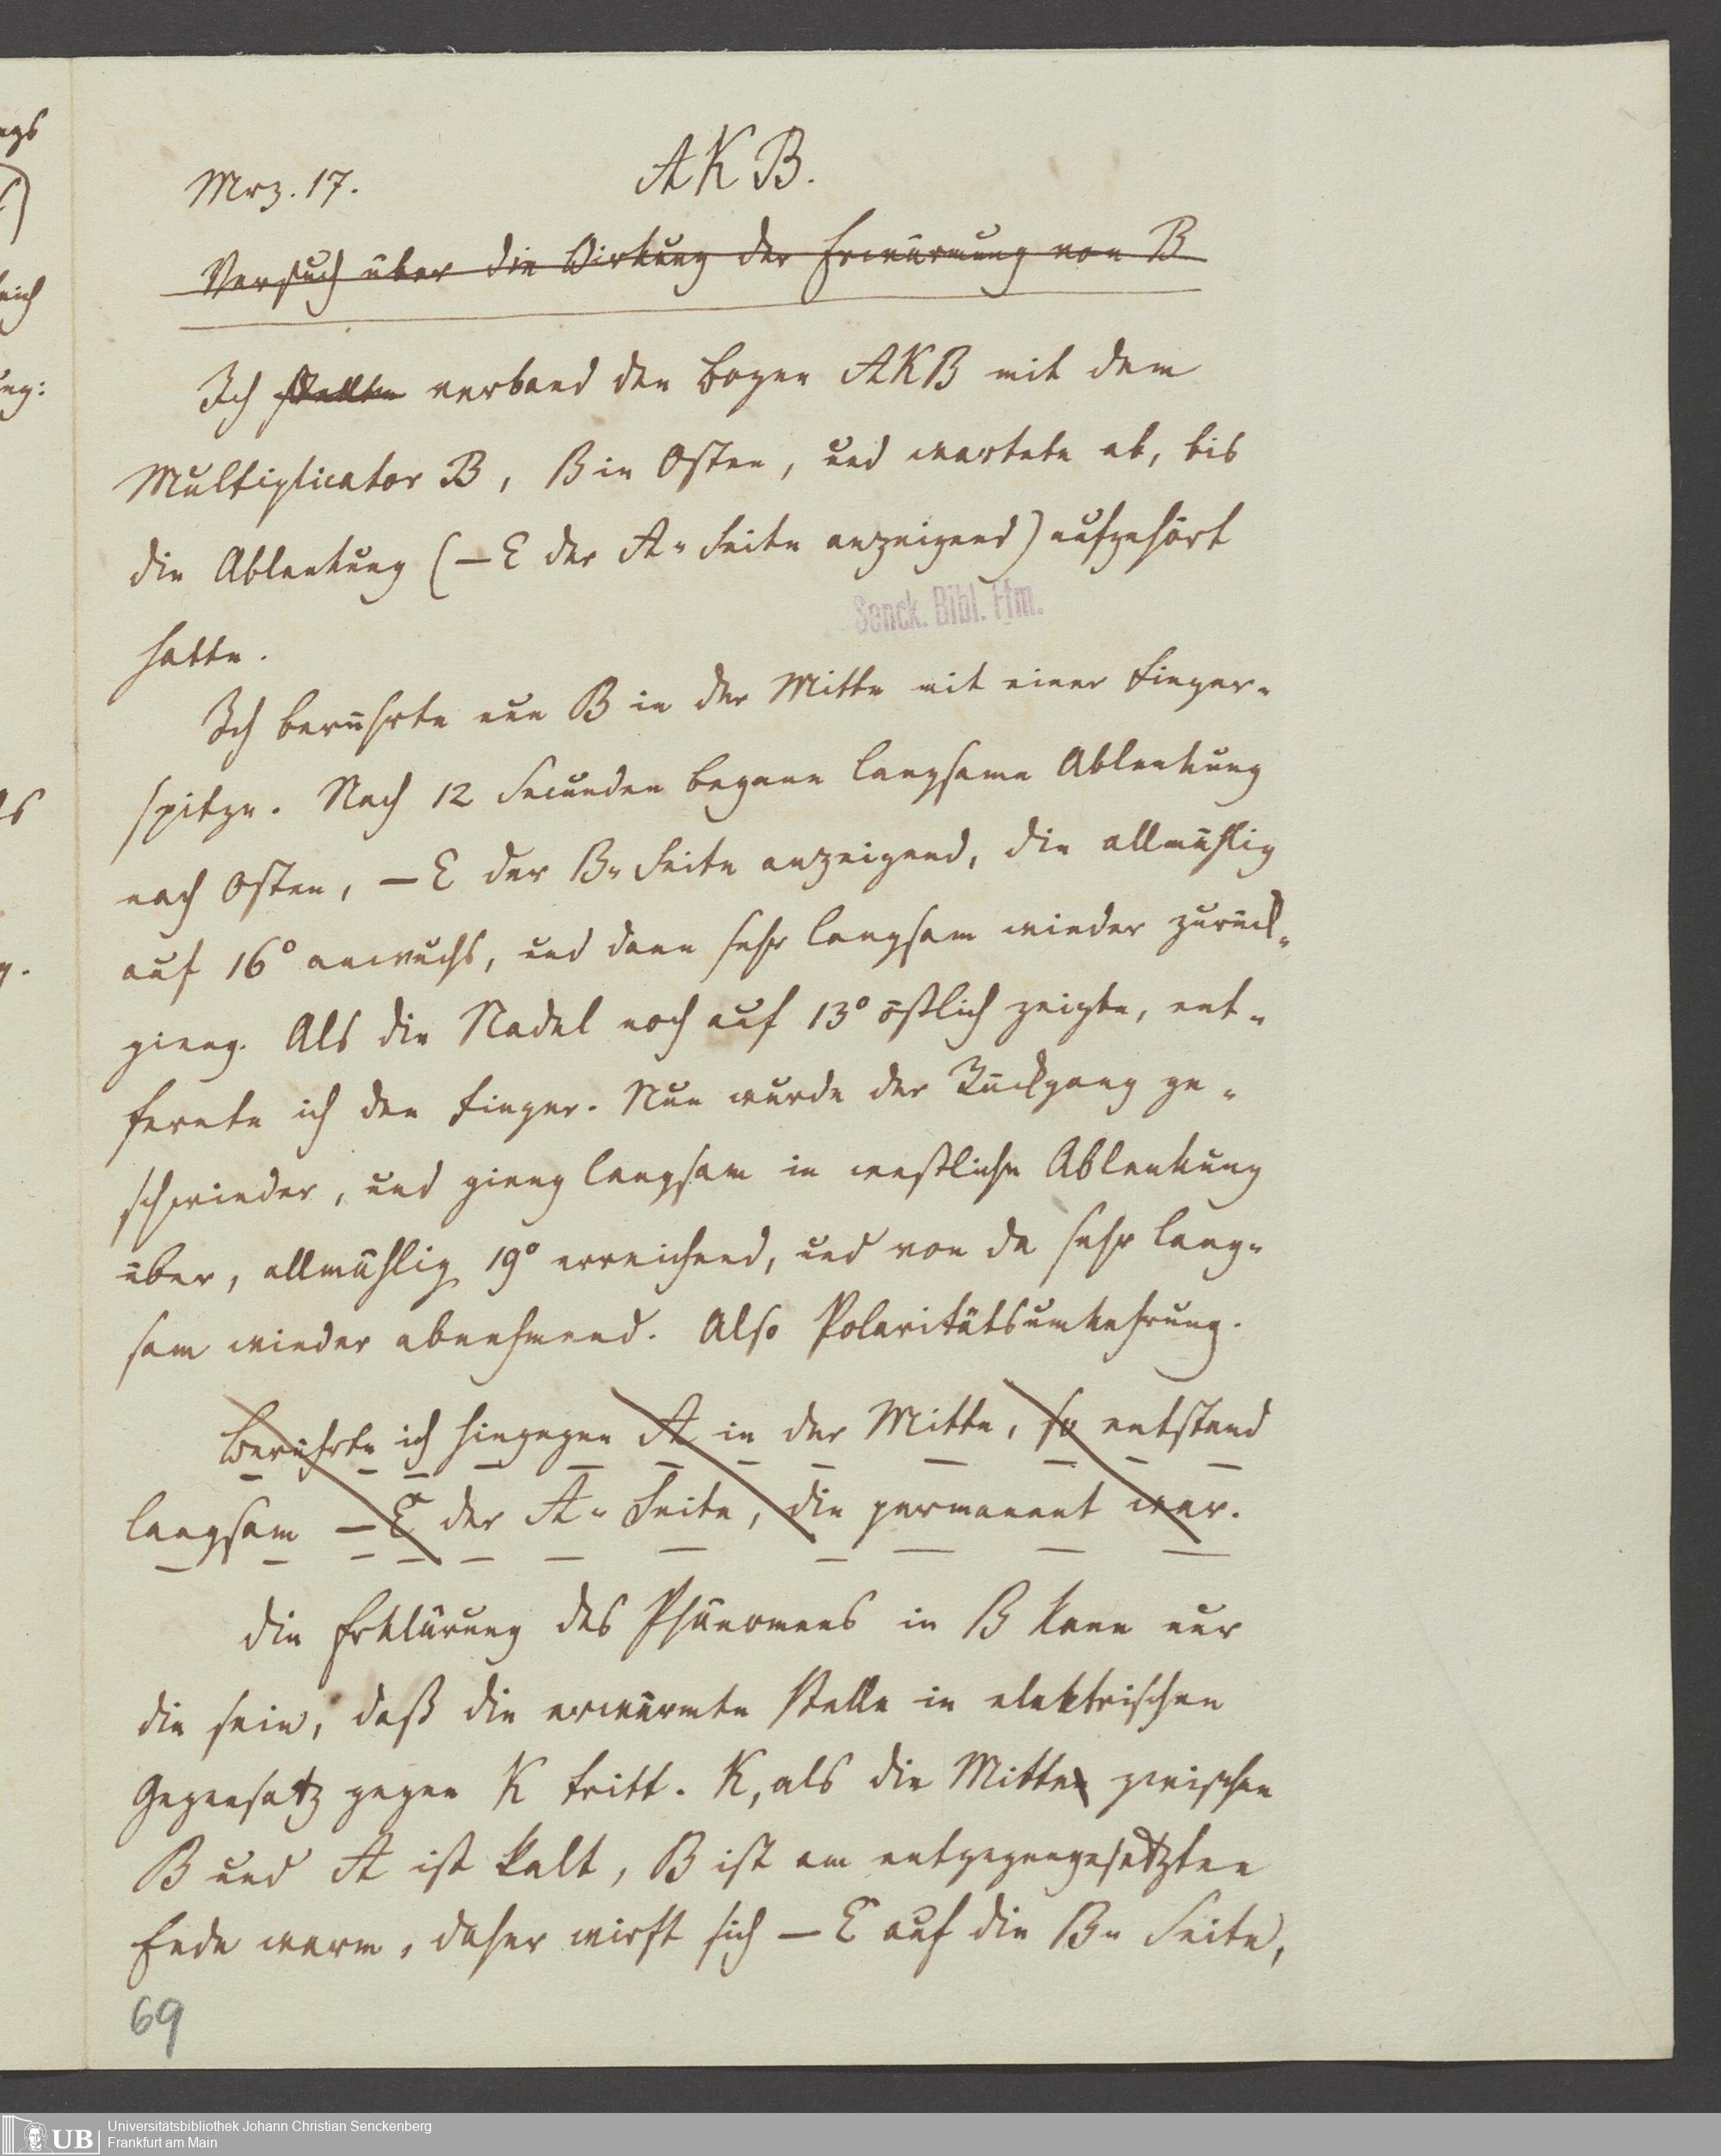 Mrz. 17.
AKB.
Versuch über die Wirkung der Erwärmung von B
Ich stellte verband den Bogen AKB mit dem
Multiplicator B, B in Osten, und wartete ab, bis
die Ablenkung (–E der A-Seite anzeigend) aufgehört
hatte.
Senck. Bibl. Ffm.
Ich berührte nun B in der Mitte mit einer Finger-
spitze. Nach 12 Secunden begann langsame Ablenkung
nach Osten, –E der B-Seite anzeigend, die allmählig
auf 16° anwuchs, und dann sehr langsam wieder zurück-
gieng. Als die Nadel noch auf 13° östlich zeigte, ent-
fernte ich den Finger. Nun wurde der Rückgang ge-
schwinder, und gieng langsam in westliche Ablenkung
über, allmählig 19° erreichend, und von da sehr lang-
sam wieder abnehmend. Also Polaritätsumkehrung.
Berührte ich hingegen A in der Mitte, so entstand
langsam –E der A-Seite, die permanent war.
Die Erklärung des Phänomens in B kann nur
die sein, daß die erwärmte Stelle in elektrischen
Gegensatz gegen K tritt. K, als die Mitte zwischen
B und A ist kalt, B ist am entgegengesetzten
Ende warm, daher wirft sich –E auf die B-Seite,
69
UB
Universitätsbibliothek Johann Christian Senckenberg
Frankfurt am Main